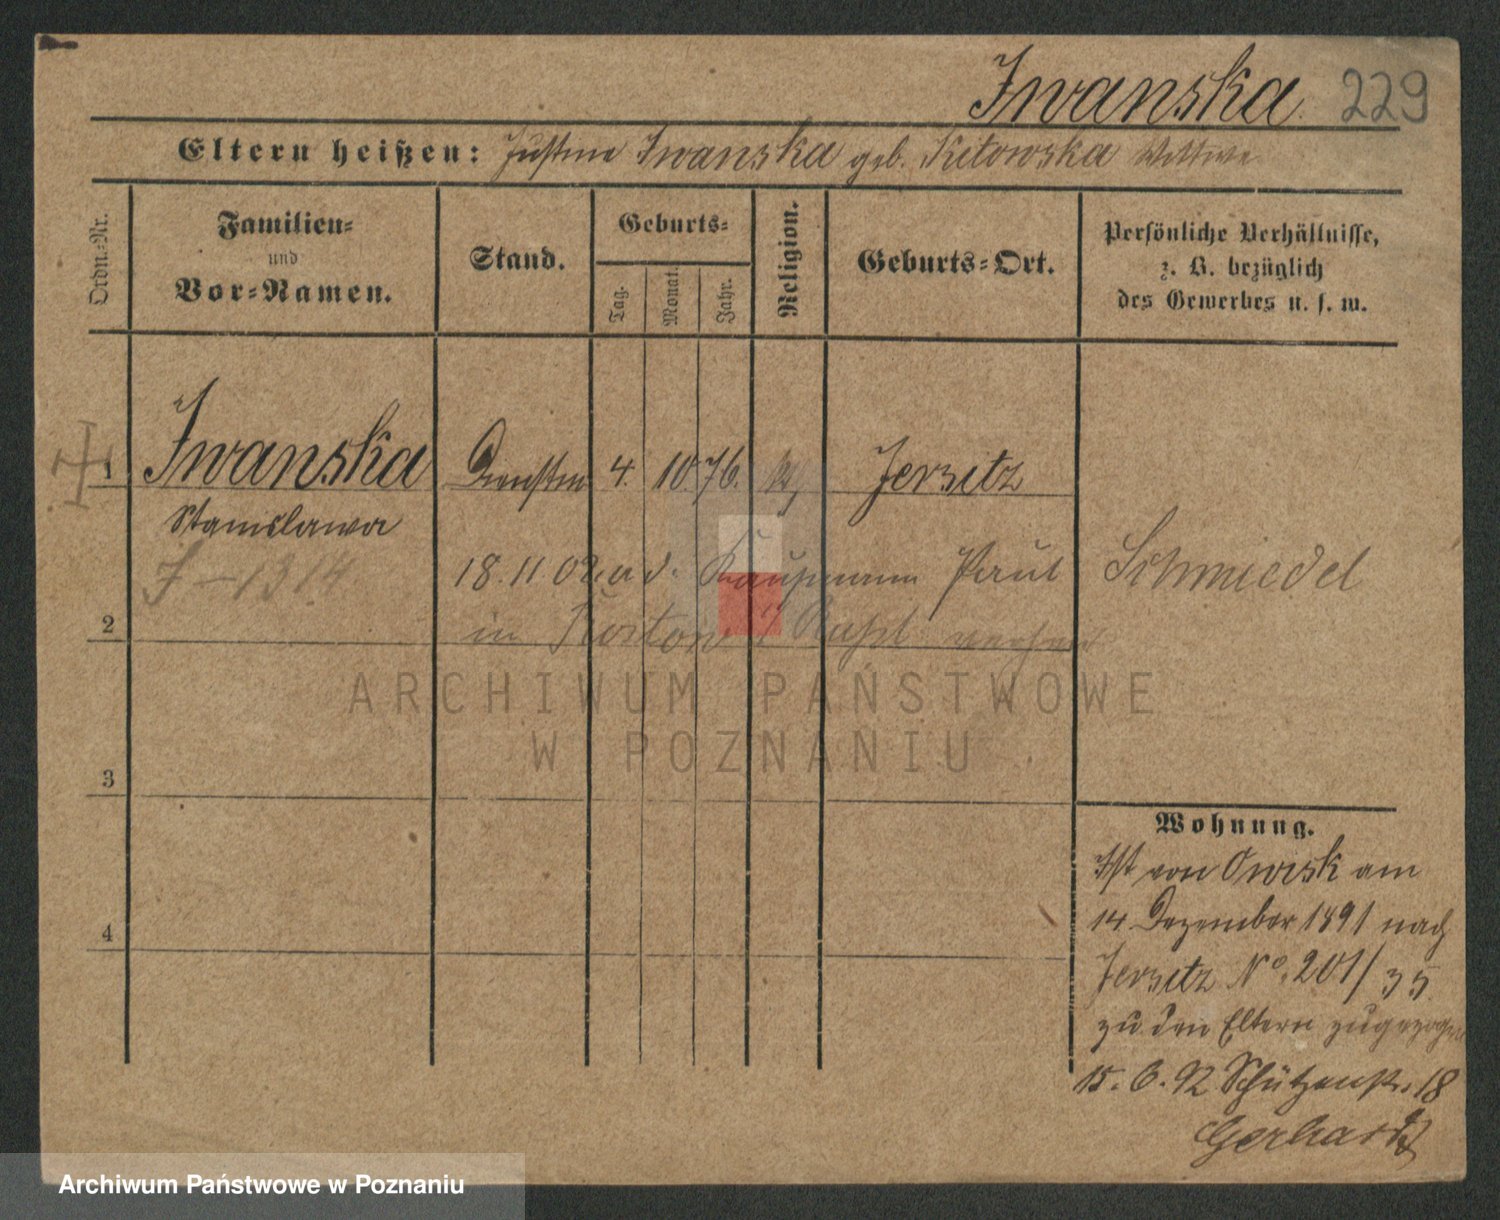 Iwanska. 229
Eltern heißen: Justine Iwanska geb. Kitowska Wittwe
Ordn.=Nr.
Familien=
und
Vor=Namen.
Stand.
Geburts=
Tag.
Monat.
Jahr.
Religion.
Geburts=Ort.
Persönliche Verhältnisse,
z. B. bezüglich
des Gewerbes u. s. w.
1 Iwanska Dienstm 4. 10. 76. k Jersitz
Stanislawa
J-1314
18.11.02 a. d. Kaufmann Paul Schmiedel
2 in Rostow
ARCHIWUM PAŃSTWOWE
W POZNANIU
3
4
Wohnung.
Ist von Owisk am
14 Dezember 1891 nach
Jersitz No. 201/35
zu den Eltern zugezogen
15. 6. 92 Schützenstr. 18
Gerhardt
Archiwum Państwowe w Poznaniu